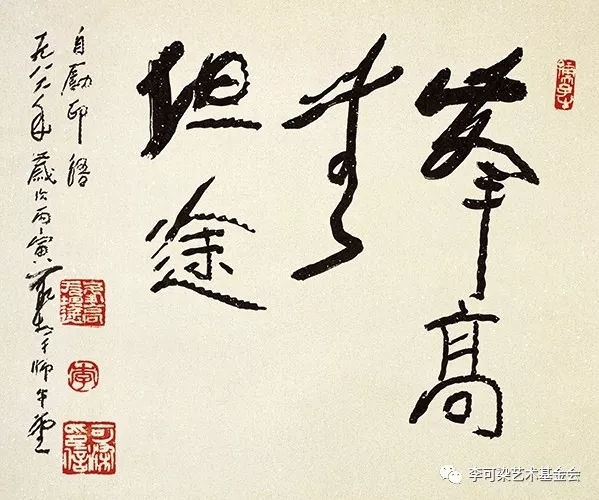 孺子牛
峯高
無
坦途
自勵印語
一九八六年歲次丙寅可染于師牛堂
李
李可染艺术基金会